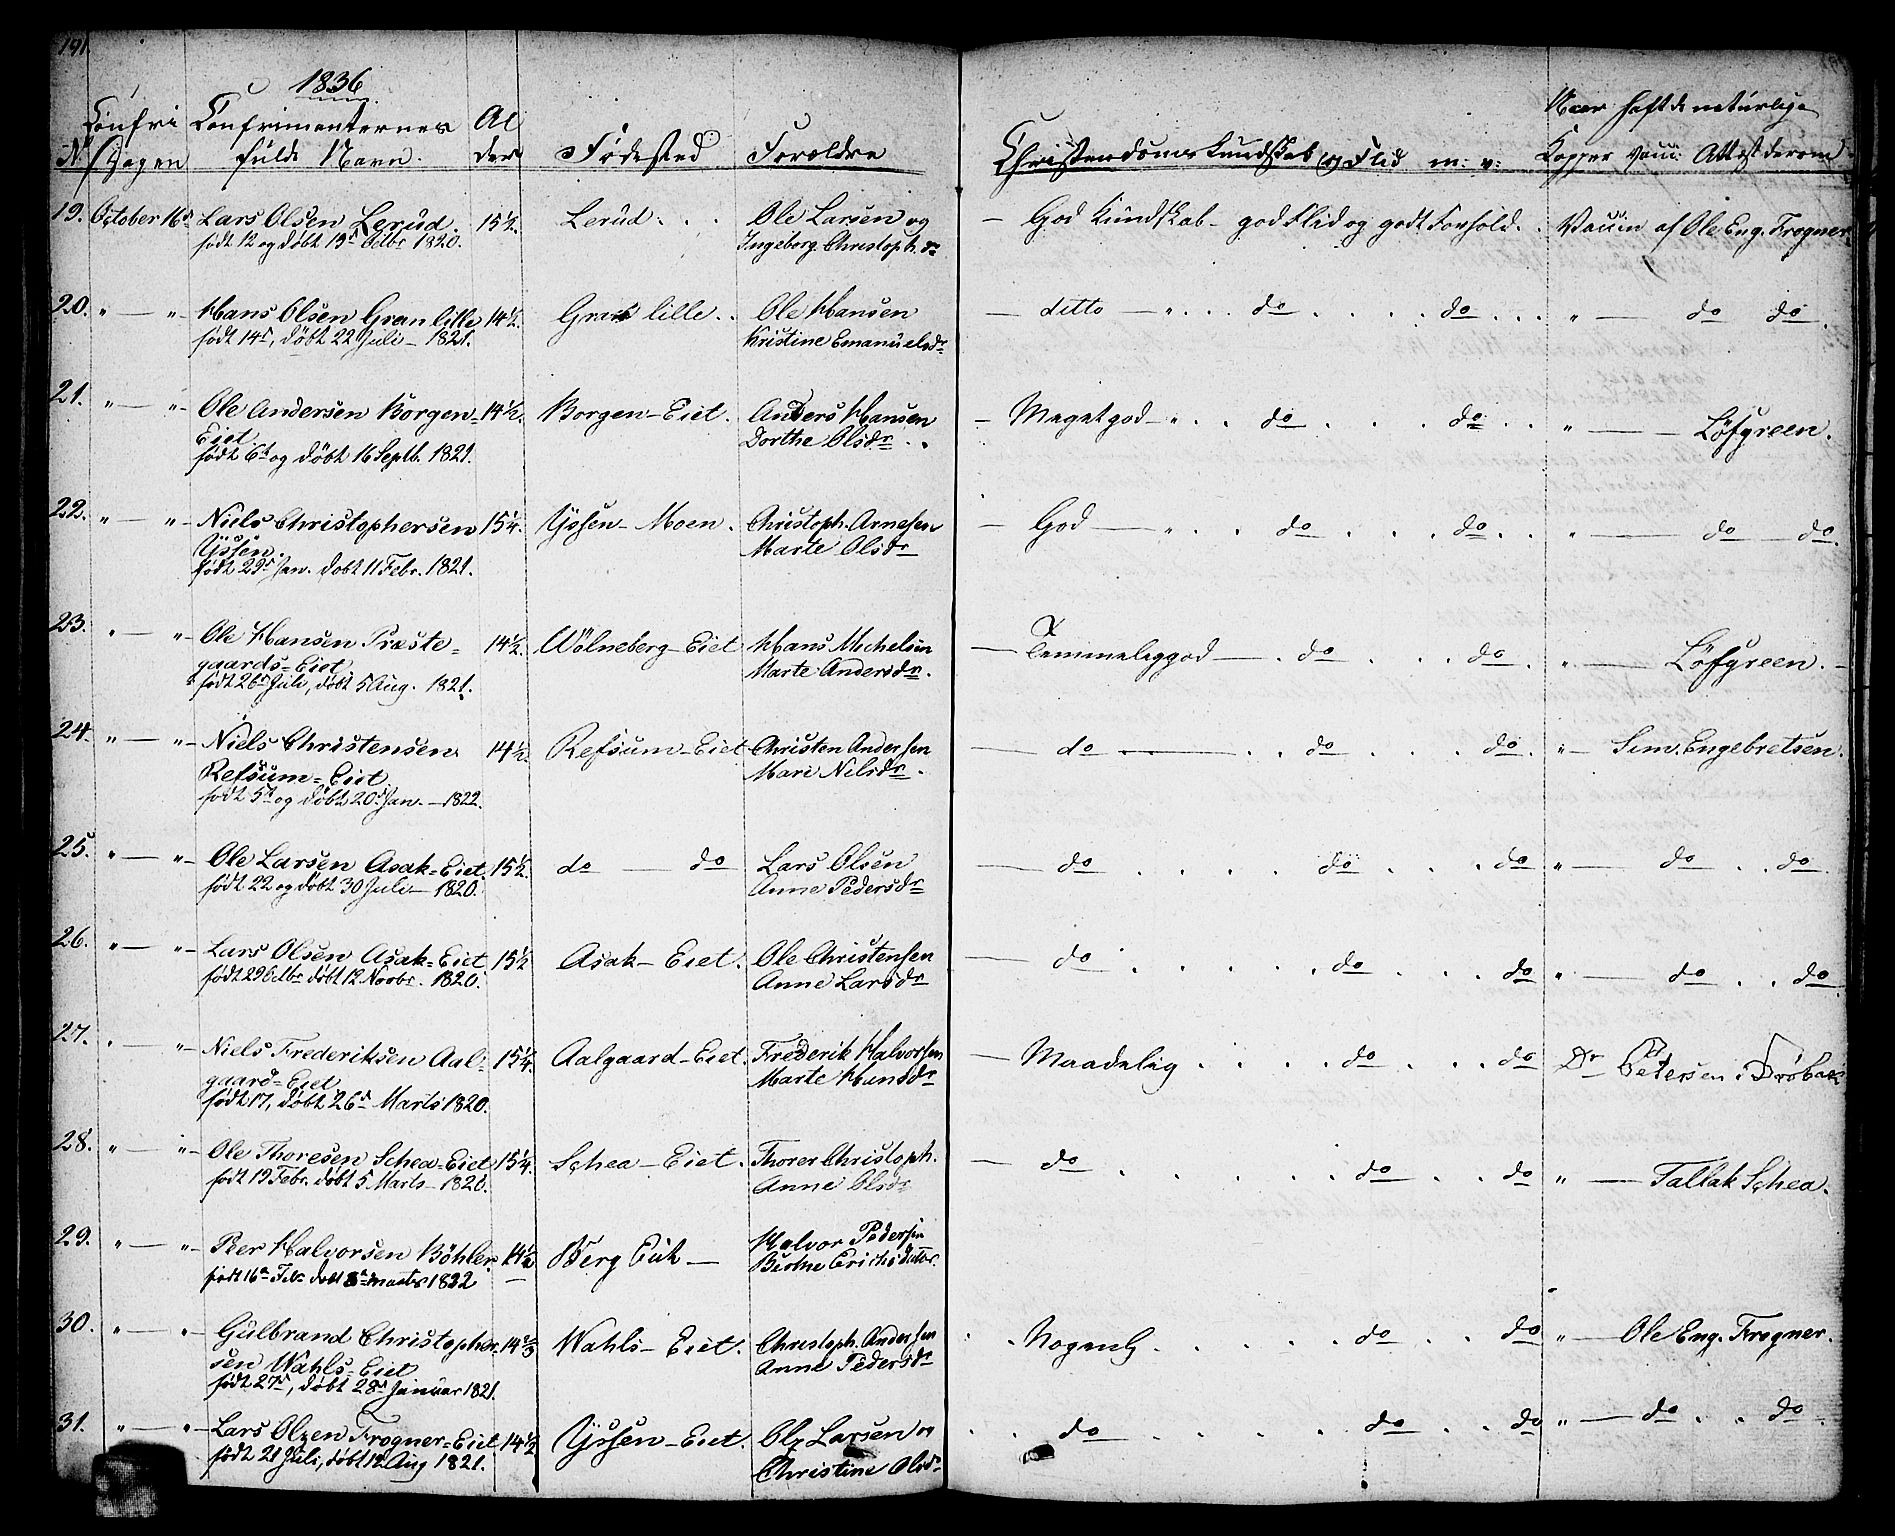 191
1836
Confir Confirmanternes Al
N. Dagen fulde Navn. der Fødested Forældre
19. October 16de Lars Olsen Lerud. 15½. Lerud. Ole Larsen og
født 12 og døbt 19de 1820. Ingeborg Christoph.dr
20. " — " Hans Olsen Gran lille 14½. Gran lille. Ole Hansen
født 14de, døbt 22 Juli — 1821. Kristine Emanuelsdr
21. " — " Ole Andersen Borgen- 14½. Borgen-Eiet. Anders Hansen
Eiet. Dorthe Olsdr.
født 6te og døbt 16 Septb. 1821.
22. " — " Niels Christophersen 15¼. Yssen-Moen. Christoph. Arnesen
Yssen. Marte Olsdr
født 29de Jan. døbt 11 Febr. 1821.
23. " — " Ole Hansen Præste= 14½. Wölneberg-Eiet Hans Michelsen
gaards=Eiet Marte Andersdr.
født 26de Juli, døbt 5 Aug. 1821.
24. " — " Niels Christensen 14½ Refsum-Eiet Christen Andersen
Refsum=Eiet Mari Nilsdr.
født 5te og døbt 20de Jan. — 1822.
25. " — " Ole Larsen Asak=Eiet. 15½. do — do Lars Olsen
født 22 og døbt 30 Juli — 1820. Anne Pedersdr
26. " — " Lars Olsen Asak=Eiet 15½ Asak-Eiet. Ole Christensen
født 29 døbt 12 Novbr. 1820. Anne Larsdr
27. " — " Niels Frederiksen Aal= 15¼. Aalgaard-Eiet. Frederik Halvorsen
gaard=Eiet Marte Hansdr
født 17, døbt 26de Marts 1820.
28. " — " Ole Thoresen Schea=Eiet 15¼. Schea-Eiet. Thorer Christoph.
født 19 Febr. døbt 5 Marts — 1820. Anne Olsdr
29. " — " Peer Halvorsen Böhler. 14½ Berg — Halvor Pedersen
født 16de døbt marts 1822
30. " — " Gulbrand Christopher 14 Wahls-Eiet. Christoph. Andersen
sen Wahls=Eiet Anne Pedersdr
født 27de, døbt 28de Januar 1821.
31. " — " Lars Olsen Frogner=Eiet 14½ Yssen-Eiet. Ole Larsen og
født 21 Juli, døbt 12 Aug 1821. Christine Olsdr
Naar havt de naturlige
Christendoms Kundskab og Flid m: v: Kopper Attest derom
— God Kundskab — god Flid og godt Forhold. . Vaccin af Ole Eng. Frogner
— ditto — " . . do . . . . do . . . " — do do.
— Meget god — " . . do . . . do . . " — Löfgreen.
— God — " . . do . . . do . . " — do — do.
— Temmelig god — . do . . . do . " — Löfgreen. —
— do — . . do . . . do . " — Sim. Engebretsen.
— do . . . . do . . . do " — do . . do.
— do . . . . . do . . . do " — do . . do.
— Maadelig . . . . do . . . do Dr Petersen i Drøbak
— do . . . . . . do . . do " — Tallak Schea.
. . Nogenl . . . . . do . . do " — Ole Eng. Frogner.
. . do . . . . . do . . do " — do . . do.